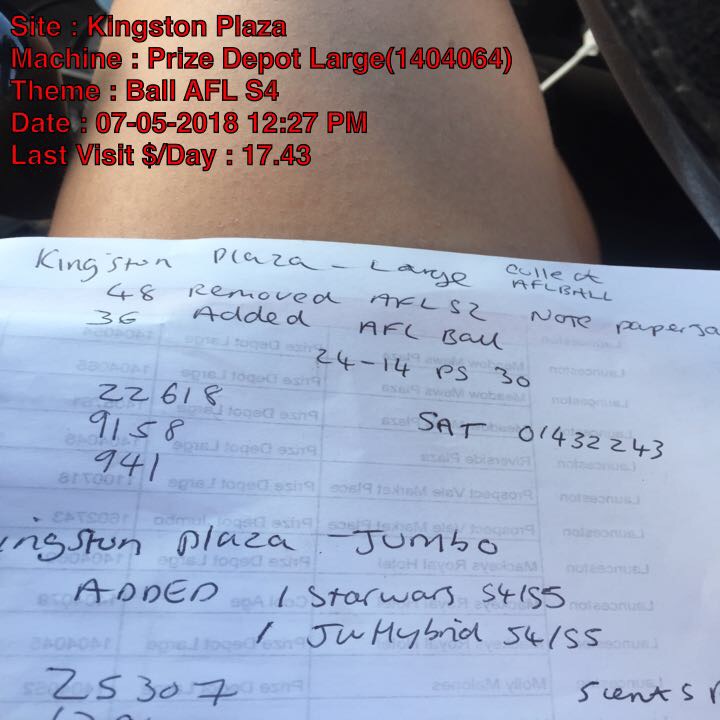 Site : Kingston Plaza
Machine : Prize Depot Large(1404064)
Theme : Ball AFL S4
Date : 07-05-2018 12:27 PM
Last Visit $/Day : 17.43
Kingston Plaza - Large collect
AFLBALL
48 Removed AFL S2 Note paperja
36 Added AFL Ball
24-14 PS 30
22618
9158 SAT 01432243
941
ingston plaza - Jumbo
ADDED 1 Starwars S4/S5
1 JW Hybrid S4/S5
25307